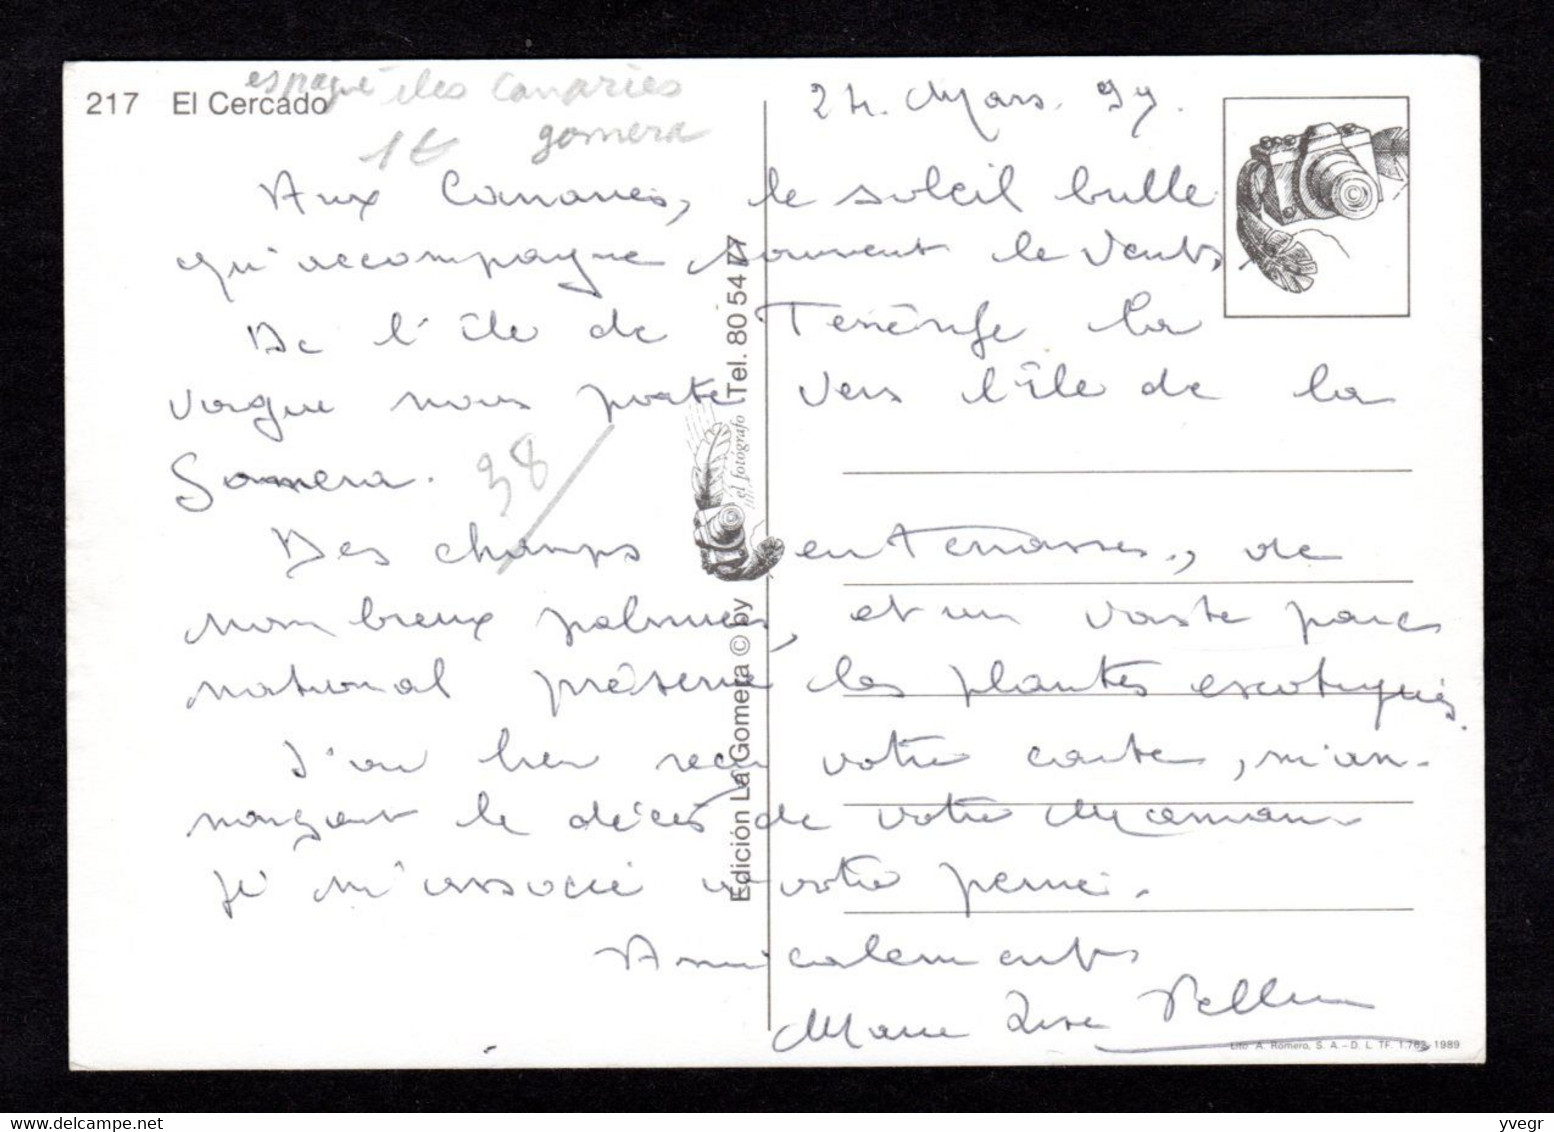 217 El Cercado
espagne îles Canaries
1€ gomera
24. Mars. 99.
Aux Canaries, le soleil brille
qu'accompagne souvent le vent,
De l'île de Ténérife la
vague nous porte vers l'île de la
Gomera.
38
Des champs en terrasses, de
nombreux palmiers, et un vaste parc
national préserve les plantes exotiques.
J'ai bien reçu votre carte, m'an-
nonçant le décès de votre Maman
je m'associe à votre peine.
Amicalement
Marie
Edición La Gomera © by
el fotógrafo
Tel. 80 54
Lito A. Romero, S. A. - D. L. TF. 1.762-1989
www.delcampe.net
yvegr